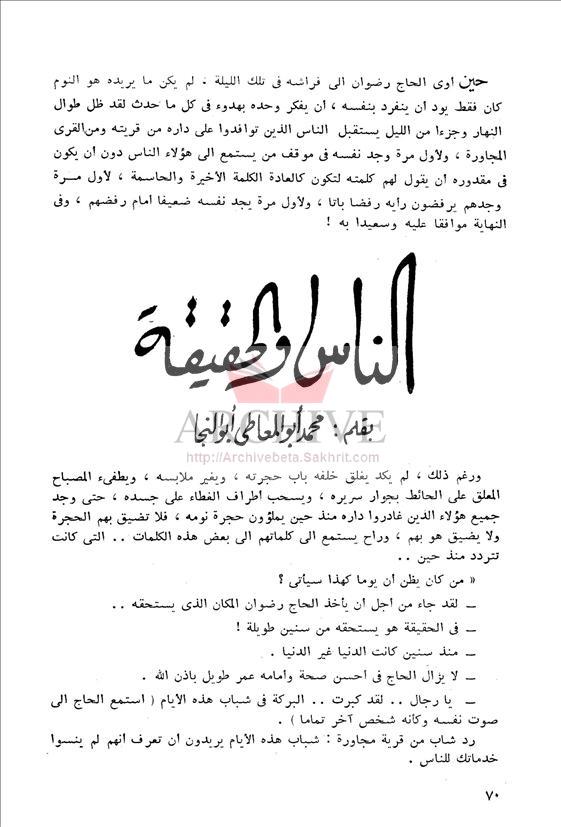 حين اوى الحاج رضوان الى فراشه فى تلك الليلة . لم يكن ما يريده هو النوم
كان فقط يود ان ينفرد بنفسه ، ان يفكر وحده بهدوء فى كل ما حدث لقد ظل طوال
النهار وجزءا من الليل يستقبل الناس الذين توافدوا على داره من قريته ومن القرى
المجاورة ، ولأول مرة وجد نفسه فى موقف من يستمع الى هؤلاء الناس دون أن يكون
فى مقدوره ان يقول لهم كلمته لتكون كالعادة الكلمة الأخيرة والحاسمة ، لأول مـرة
وجدهم يرفضون رأيه رفضا باتا ، ولأول مرة يجد نفسه ضعيفا امام رفضهم ، وفى
النهاية موافقا عليه وسعيدا به !
الناس والحقيقة
ARCHIVE
بقلم : محمد أبو المعاطى أبو النجا
http://Archivebeta.Sakhrit.com
ورغم ذلك ، لم يكد يغلق خلفه باب حجرته ، ويغير ملابسه ، ويطفىء المصباح
المعلق على الحائط بجوار سريره ، ويسحب اطراف الغطاء على جسده ، حتى وجد
جميع هؤلاء الذين غادروا داره منذ حين يملؤون حجرة نومه ، فلا تضيق بهم الحجرة
ولا يضيق هو بهم ، وراح يستمع الى كلماتهم الى بعض هذه الكلمات .. التى كانت
تتردد منذ حين ..
« من كان يظن ان يوما كهذا سيأتى ؟
ــ لقد جاء من اجل ان يأخذ الحاج رضوان المكان الذى يستحقه ..
ــ فى الحقيقة هو يستحقه من سنين طويلة !
ــ منذ سنين كانت الدنيا غير الدنيا .
ــ لا يزال الحاج فى احسن صحة وأمامه عمر طويل باذن الله .
ــ يا رجال .. لقد كبرت .. البركة فى شباب هذه الأيام ( استمع الحاج الى
صوت نفسه وكأنه شخص آخر تماما ) .
رد شاب من قرية مجاورة : شباب هذه الأيام يريدون أن تعرف أنهم لم ينسوا
خدماتك للناس .
٧٠